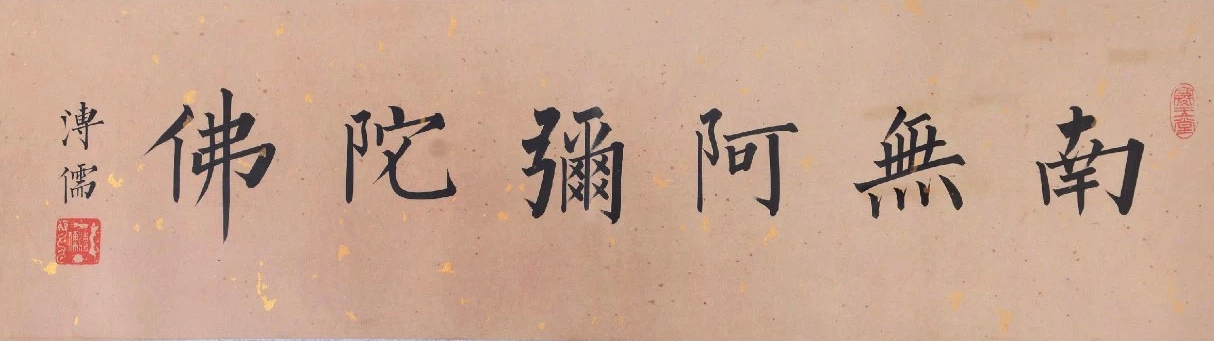 南無阿彌陀佛
溥儒